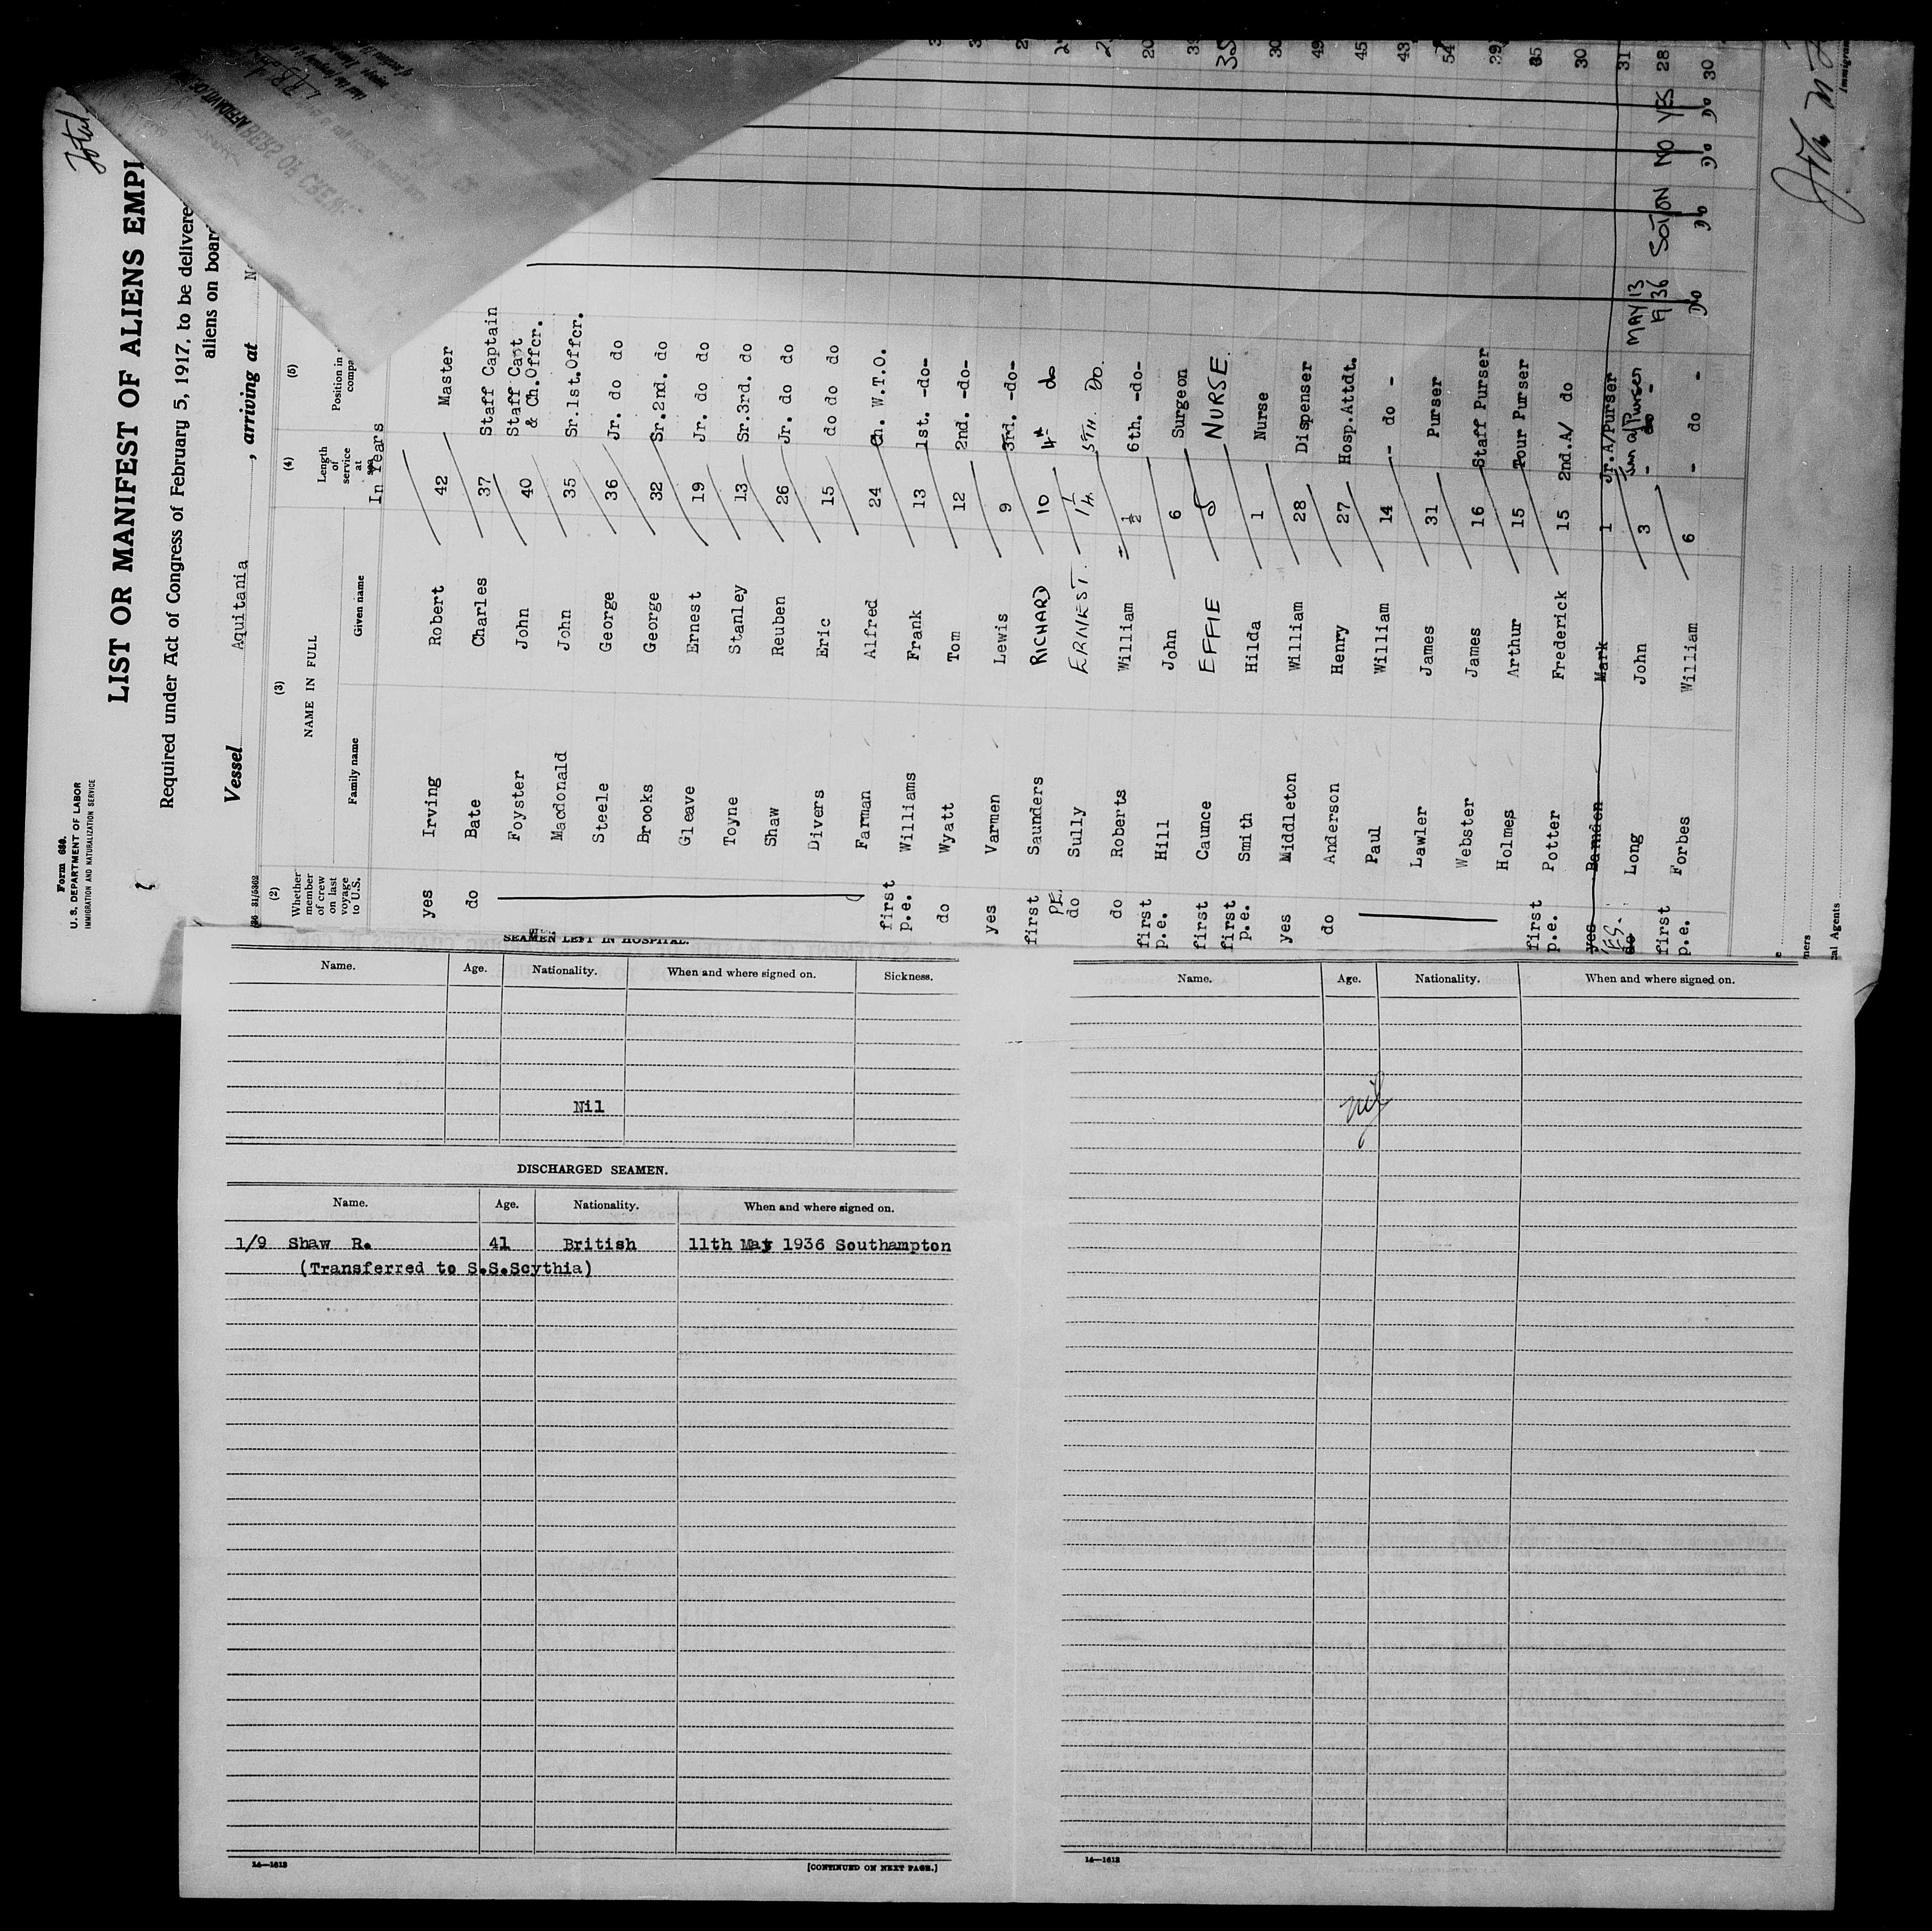 Form 680.
U. S. DEPARTMENT OF LABOR
IMMIGRATION AND NATURALIZATION SERVICE
Total
LIST OR MANIFEST OF ALIENS EMPL
Required under Act of Congress of February 5, 1917, to be delivere
aliens on board
Vessel Aquitania , arriving at
(2) (3) (4) (5)
Whether member of crew on last voyage to U.S. NAME IN FULL Length of service at sea Position in
Family name Given name In Years
yes Irving Robert 42 Master
do Bate Charles 37 Staff Captain
Foyster John 40 Staff Capt & Ch.Offcr.
Macdonald John 35 Sr.1st.Offcr.
Steele George 36 Jr. do do
Brooks George 32 Sr.2nd. do
Gleave Ernest 19 Jr. do do
Toyne Stanley 13 Sr.3rd. do
Shaw Reuben 26 Jr. do do
Divers Eric 15 do do do
Farman Alfred 24 Ch. W.T.O.
first p.e. Williams Frank 13 1st. -do-
do Wyatt Tom 12 2nd. -do-
yes Varmen Lewis 9 3rd. -do-
first PE. Saunders RICHARD 10 4th do
do Sully ERNEST. 1 1/4 5TH. DO. 2
do Roberts William 1/2 6th. -do- 20
first p.e. Hill John 6 Surgeon 39
first Caunce EFFIE 8 NURSE. 35
first p.e. Smith Hilda 1 Nurse 30
yes Middleton William 28 Dispenser 49
do Anderson Henry 27 Hosp.Attdt. 45
Paul William 14 -- do - 43
Lawler James 31 Purser 54
Webster James 16 Staff Purser 39
Holmes Arthur 15 Tour Purser 35
first p.e. Potter Frederick 15 2nd.A/ do 30
yes Barnden Mark 1 Jr.A/Purser 31
YES. do Long John 3 Jun a/Purser - do - MAY/13 1936 SOTON NO YES 28
first p.e. Forbes William 6 - do - Do Do Do Do 30
Immigran
al Agents
SEAMEN LEFT IN HOSPITAL.
Name. Age. Nationality. When and where signed on. Sickness.
Nil
DISCHARGED SEAMEN.
Name. Age. Nationality. When and where signed on.
1/9 Shaw R. 41 British 11th May 1936 Southampton
(Transferred to S.S.Scythia)
14—1612
[CONTINUED ON NEXT PAGE.]
Name. Age. Nationality. When and where signed on.
nil
14—1612